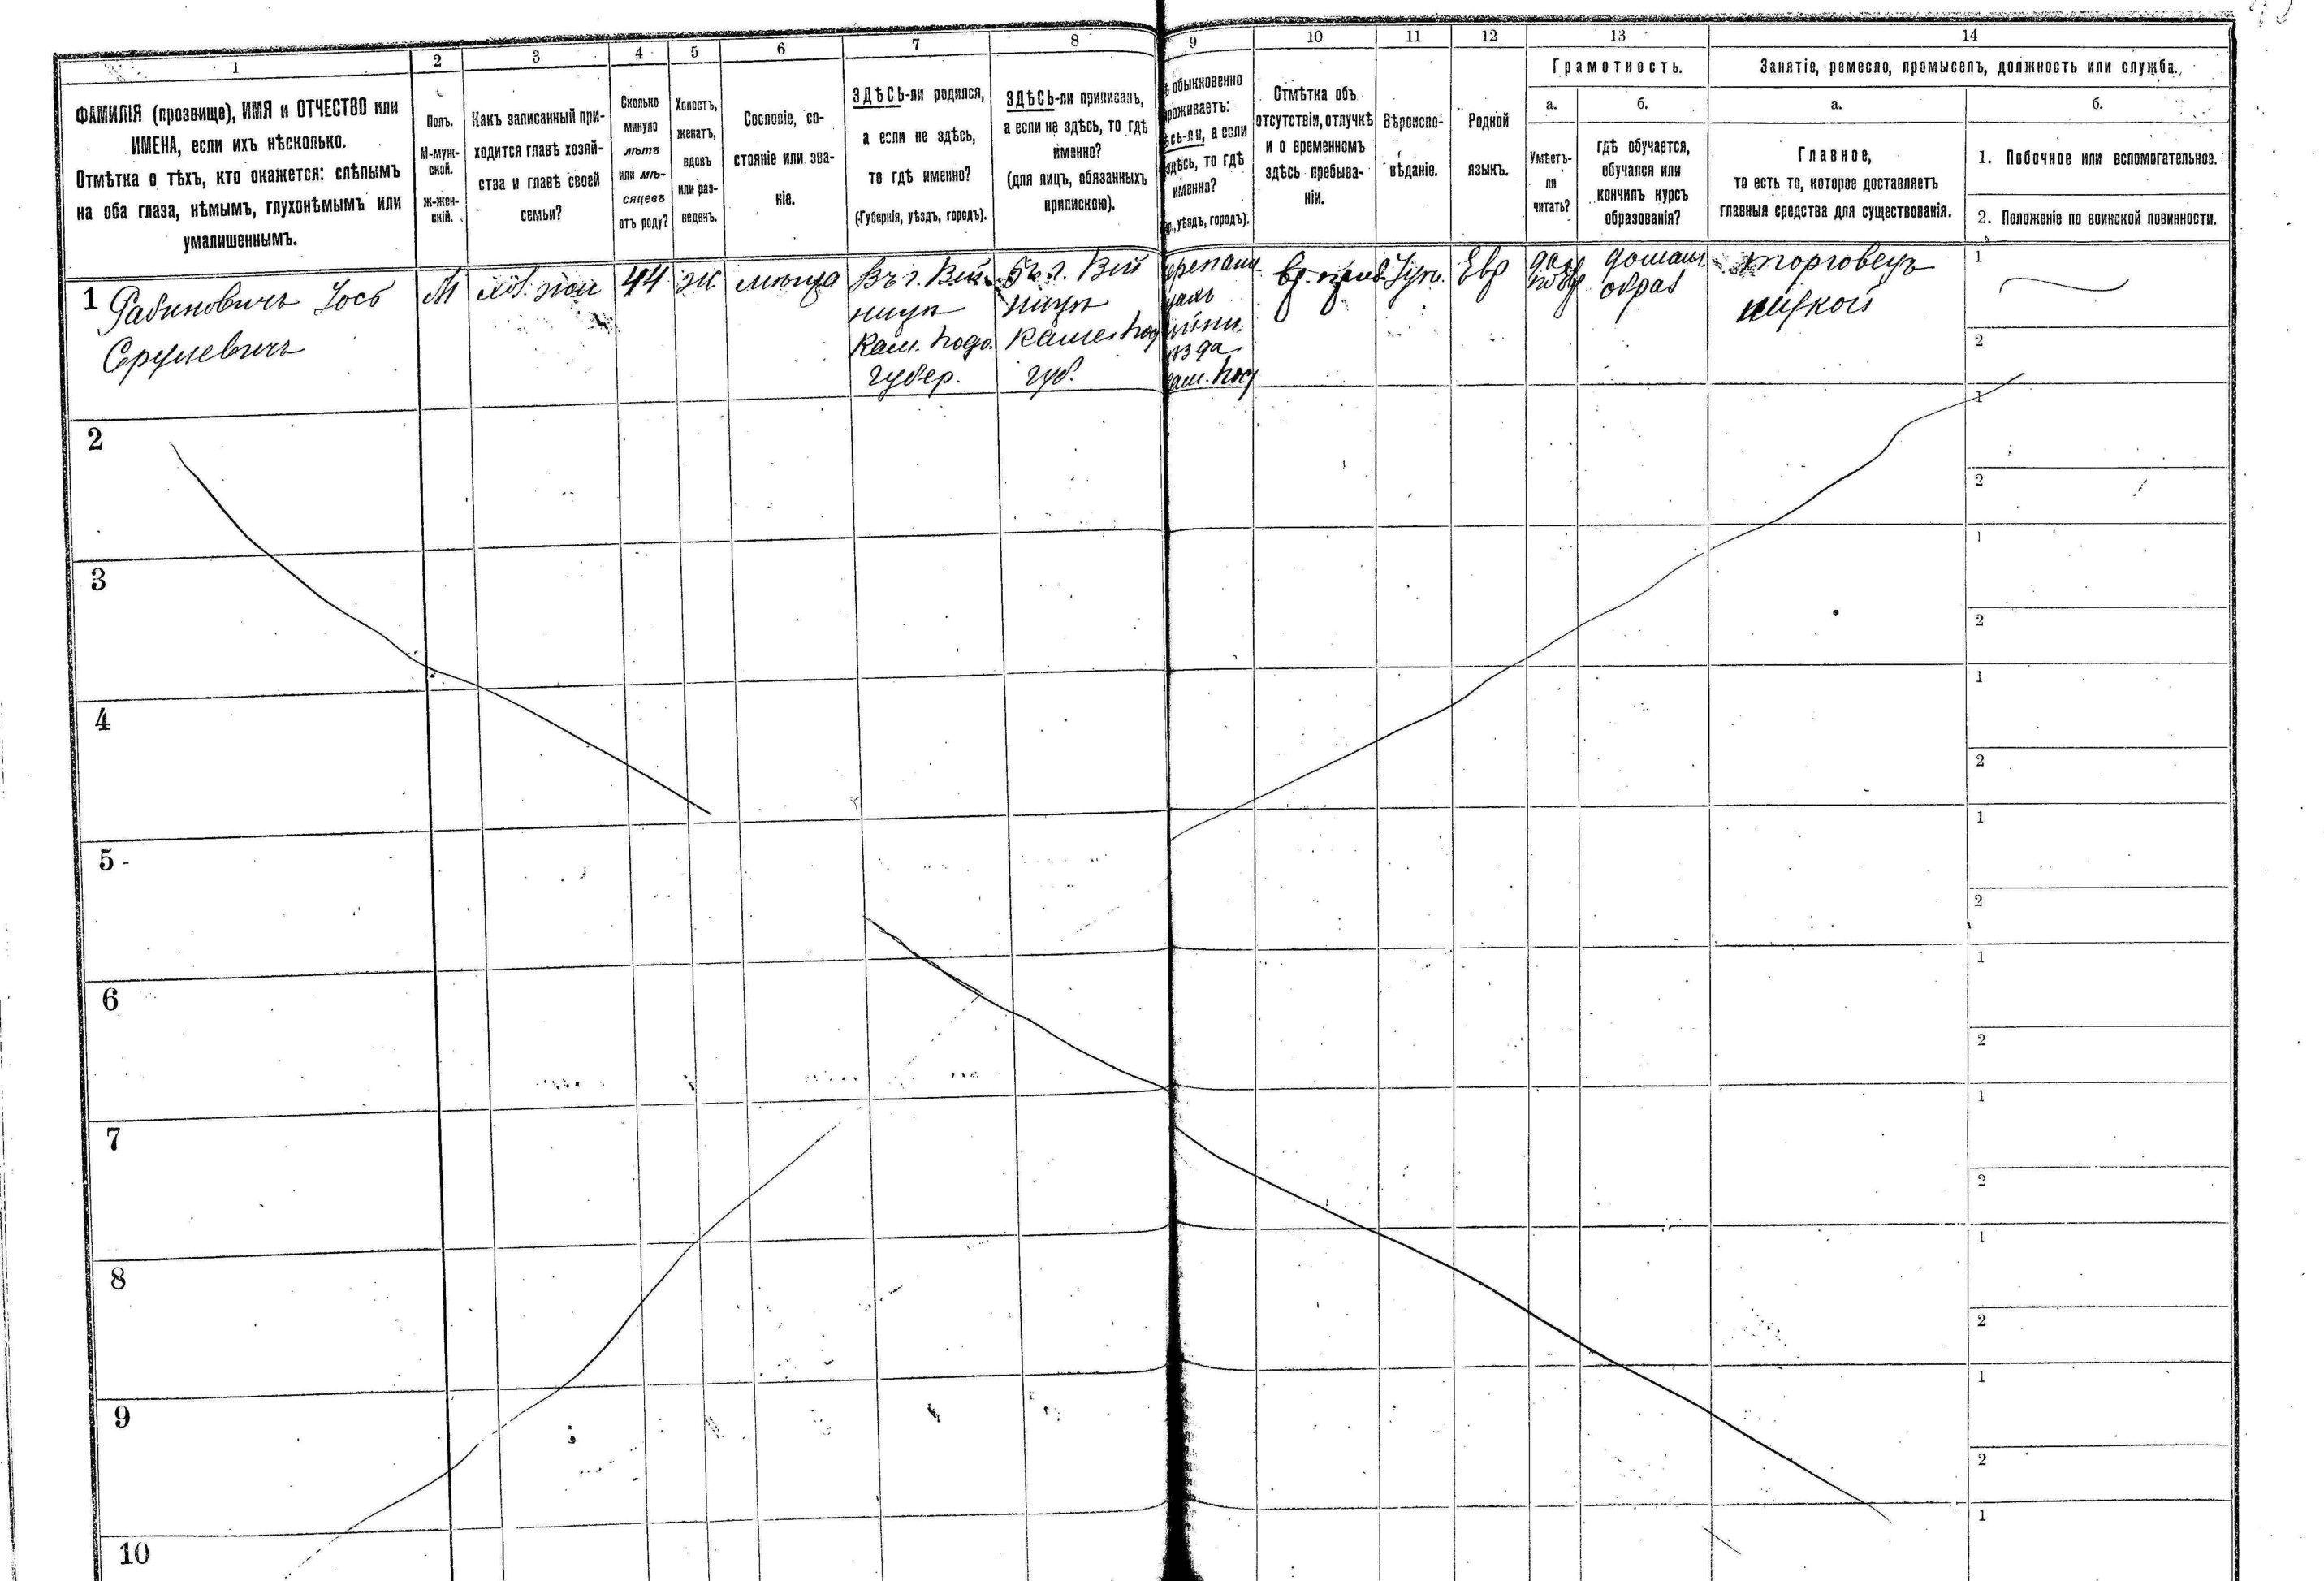 1
2
3
4
5
6
7
8
9
10
11
12
13
14
ФАМИЛІЯ (прозвище), ИМЯ и ОТЧЕСТВО или
ИМЕНА, если ихъ нѣсколько.
Отмѣтка о тѣхъ, кто окажется: слѣпымъ
на оба глаза, нѣмымъ, глухонѣмымъ или
умалишеннымъ.
Полъ.
М-муж-
ской.
Ж-жен-
скій.
Какъ записанный при-
ходится главѣ хозяй-
ства и главѣ своей
семьи?
Сколько
минуло
лѣтъ
или мѣ-
сяцевъ
отъ роду?
Холостъ,
женатъ,
вдовъ
или раз-
веденъ.
Сословіе, со-
стояніе или зва-
ніе.
ЗДѢСЬ-ли родился,
а если не здѣсь,
то гдѣ именно?
(Губернія, уѣздъ, городъ).
ЗДѢСЬ-ли приписанъ,
а если не здѣсь, то гдѣ
именно?
(для лицъ, обязанныхъ
припискою).
обыкновенно
роживаетъ:
сь-ли, а если
здѣсь, то гдѣ
именно?
уѣздъ, городъ).
Отмѣтка объ
отсутствіи, отлучкѣ
и о временномъ
здѣсь пребыва-
ніи.
Вѣроиспо-
вѣданіе.
Родной
языкъ.
Грамотность.
а.
Умѣетъ-
ли
читать?
б.
гдѣ обучается,
обучался или
кончилъ курсъ
образованія?
Занятіе, ремесло, промыселъ, должность или служба.
а.
Главное,
то есть то, которое доставляетъ
главныя средства для существованія.
б.
1. Побочное или вспомогательное.
2. Положеніе по воинской повинности.
1
Рабиновичъ Іось
Срулевичъ
М
44
ж.
мѣща
Въ г. Вин
ницѣ
Кам. Подо.
губер.
Въ г. Вин
ницѣ
Камен. Под
губ.
Кам. Под
вр. преб.
Іуд.
Евр
да
домашн.
образ
торговецъ
1
2
2
1
2
3
1
2
4
1
2
5
1
2
6
1
2
7
1
2
8
1
2
9
1
2
10
1